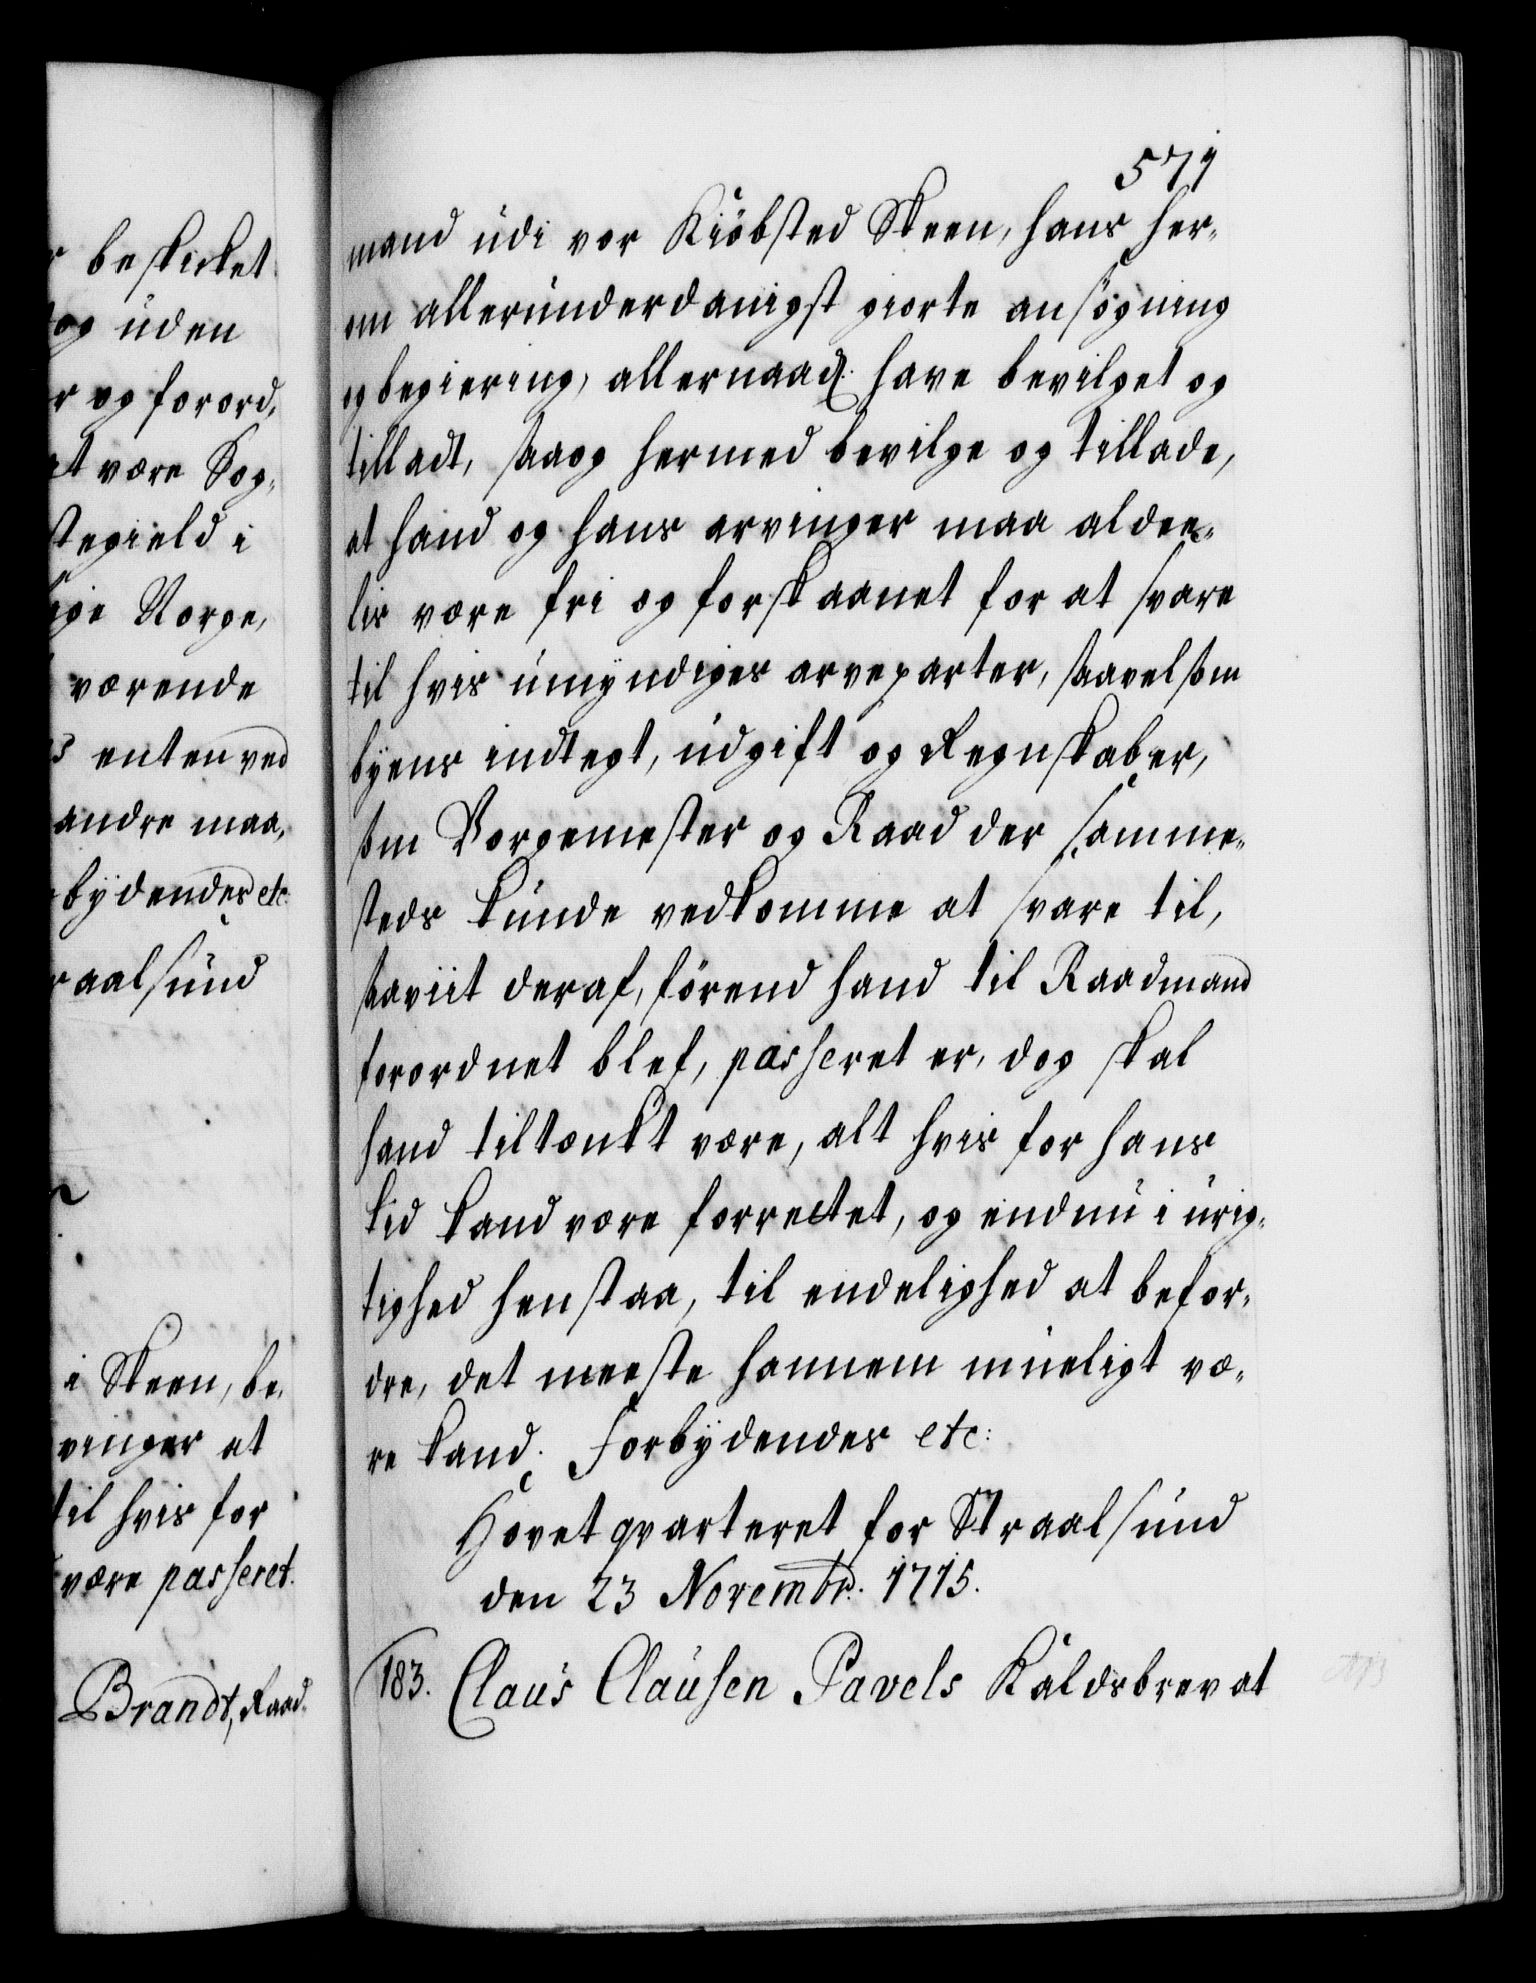 r beskicket
og uden
r og forord,
at være Sog,
stegield i
ige Norge,
værende
enten ved
andre maa,
bydendes etc.
raalsund
i Skeen, be,
vinger at
til hvis for
være passeret.
Brandt, Raad,
571
mand udi vor Kiöbsted Skeen, hans her,
om allerunderdanigst giorte ansögning
og begiering, allernaad: have bevilget og
tilladt, saaog hermed bevilge og tillade,
at hand og hans arvinger maa aldee,
lis være fri og forskaanet for at svare
til hvis umyndiges arveparter, saavelsom
byens indtegt, udgift og Regnskaber,
som Borgemester og Raad der samme,
steds kunde vedkomme at svare til,
saaviit deraf, förend hand til Raadmand
forordnet blef, passeret er, dog skal
hand tiltænkt være, alt hvis for hans
tid kand være forrettet, og endnu i urig,
tighed henstaa, til endelighed at befor,
dre, det meeste hannem mueligt væ,
re kand. Forbydendes etc:
Hovetqvarteret for Straalsund
den 23 Novembr. 1715.
183. Claus Clausen Pavels Kaldsbrev at